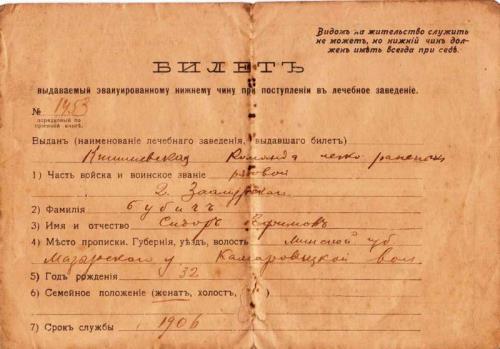 Видомъ на жительство служить
не можетъ, но нижній чинъ дол-
женъ имѣть всегда при себѣ.
БИЛЕТЪ
выдаваемый эвакуированному нижнему чину при поступленіи въ лечебное заведеніе.
№ 1453
порядковый по
пріемной книгѣ.
Выданъ (наименованіе лечебнаго заведенія, выдавшаго билетъ)
Команда легко раненыхъ
1) Часть войска и воинское званіе рядовой
2 Заамурскаго
2) Фамилія Бубичъ
3) Имя и отчество Сидоръ Ефимовъ
4) Мѣсто прописки. Губернія, уѣздъ, волость Минской губ
Мазырскаго у Камаровицкой вол.
5) Годъ рожденія 32
6) Семейное положеніе (женатъ, холостъ, )
7) Срокъ службы 1906